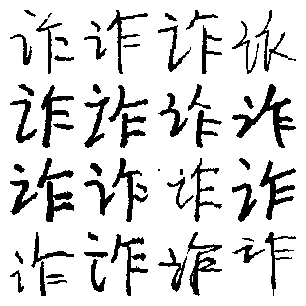 诈诈诈诈
诈诈诈诈
诈诈诈诈
诈诈诈诈